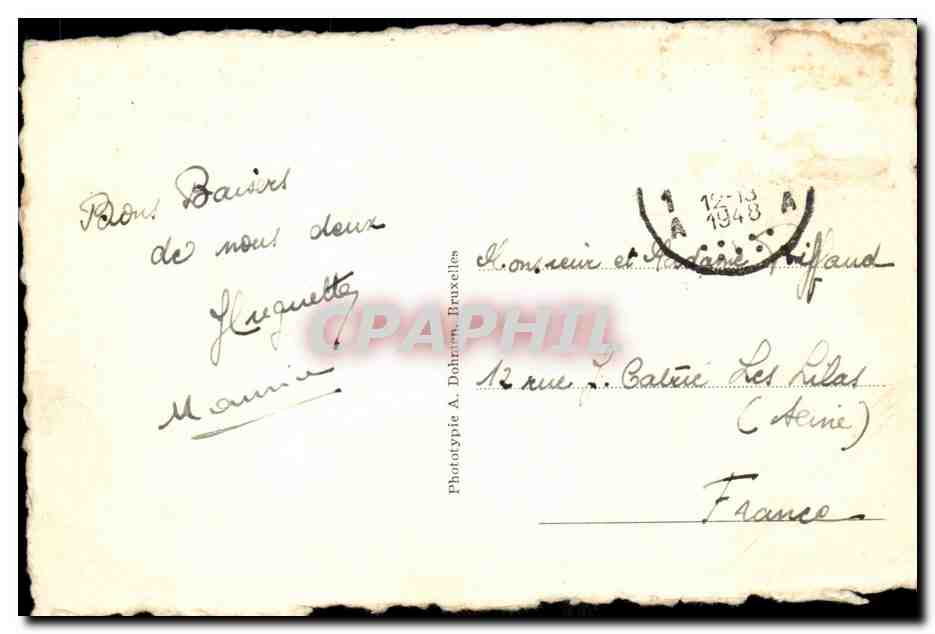 Bons Baisers
de nous deux
Huguette
Maurice
Phototypie A. Dohmen, Bruxelles
1 12-13 A
A 1948
Monsieur et Madame Riffaud
12 rue J. Catrie Les Lilas
(Seine)
France
CPAPHIL